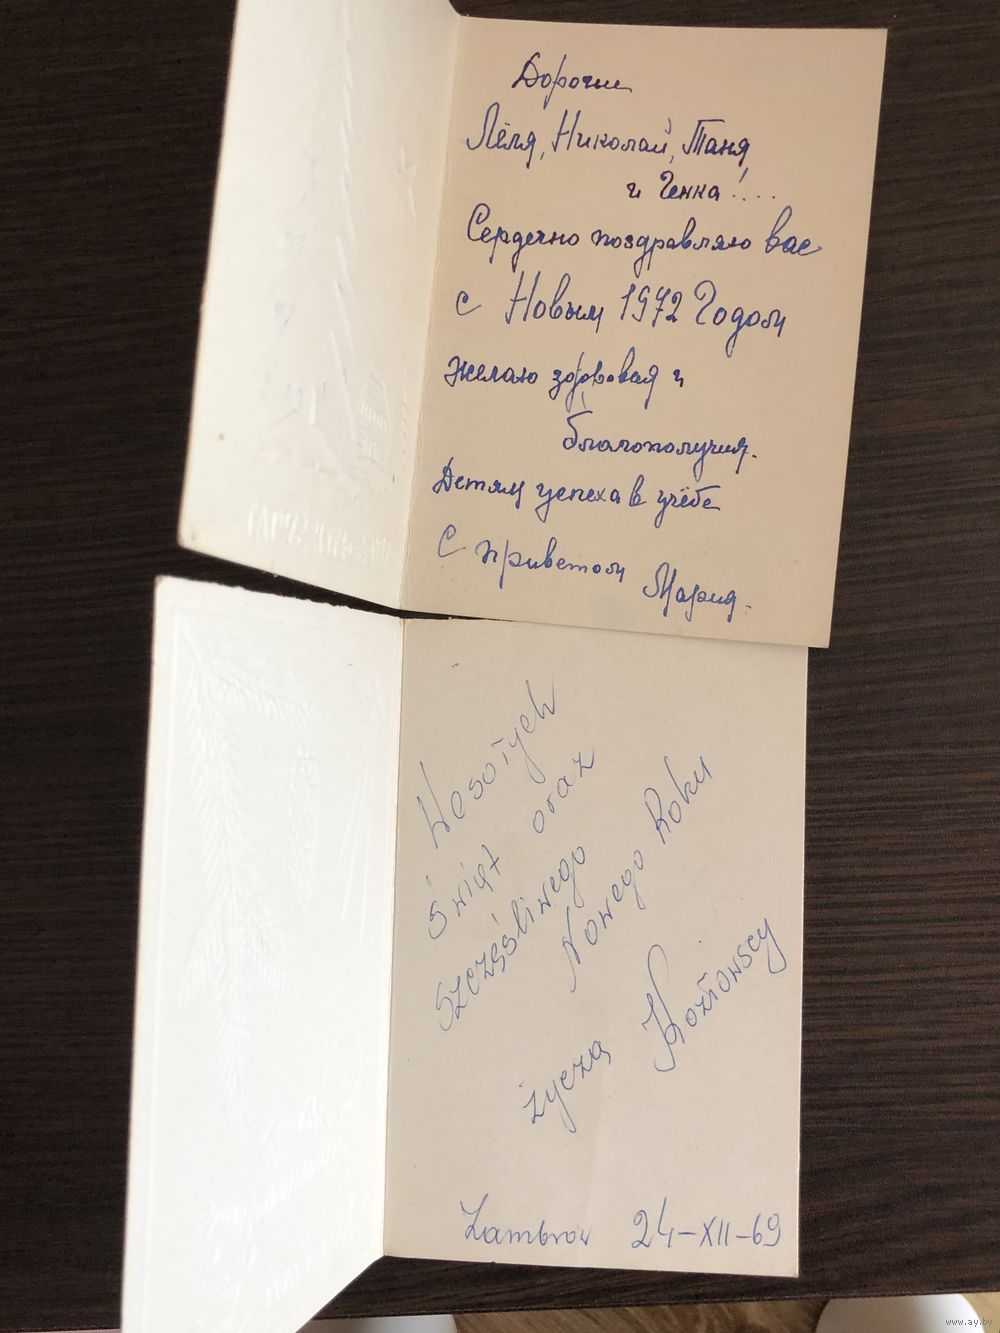 Дорогие
Лёля, Николай, Таня,
и Генка!...
Сердечно поздравляю вас
с Новым 1972 Годом
желаю здоровая и
благополучия.
Детям успеха в учёбе
С приветом Мария.
Wesołych
Świąt oraz
Szczęśliwego
Nowego Roku
życzą Kozłowscy
Zambrów 24-XII-69
www.ay.by